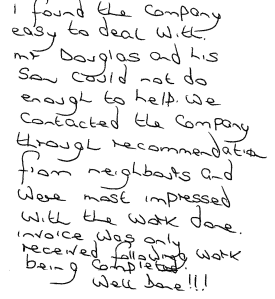 I found the company
easy to deal with.
Mr Douglas and his
Son could not do
enough to help. We
contacted the company
through recommendation
from neighbours and
were most impressed
with the work done.
invoice was only
received following work
being completed.
Well Done!!!